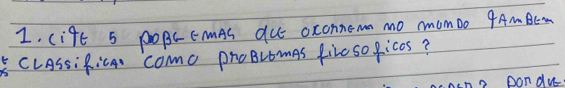 1. cite 5 problemas que ocorrem no mundo também
e classificas como problemas filosoficos?
por que